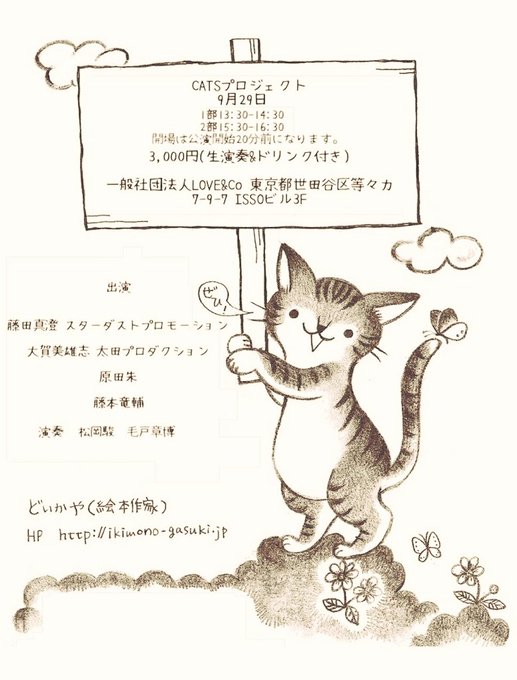 CATSプロジェクト
9月29日
1部13:30-14:30
2部15:30-16:30
開場は公演開始20分前になります。
3,000円(生演奏&ドリンク付き)
一般社団法人LOVE&Co 東京都世田谷区等々力
7-9-7 ISSOビル3F
ぜひ!
出演
藤田真澄 スターダストプロモーション
大賀美雄志 太田プロダクション
原田朱
藤本竜輔
演奏 松岡駿 毛戸章博
どいかや(絵本作家)
HP http://ikimono-gasuki.jp